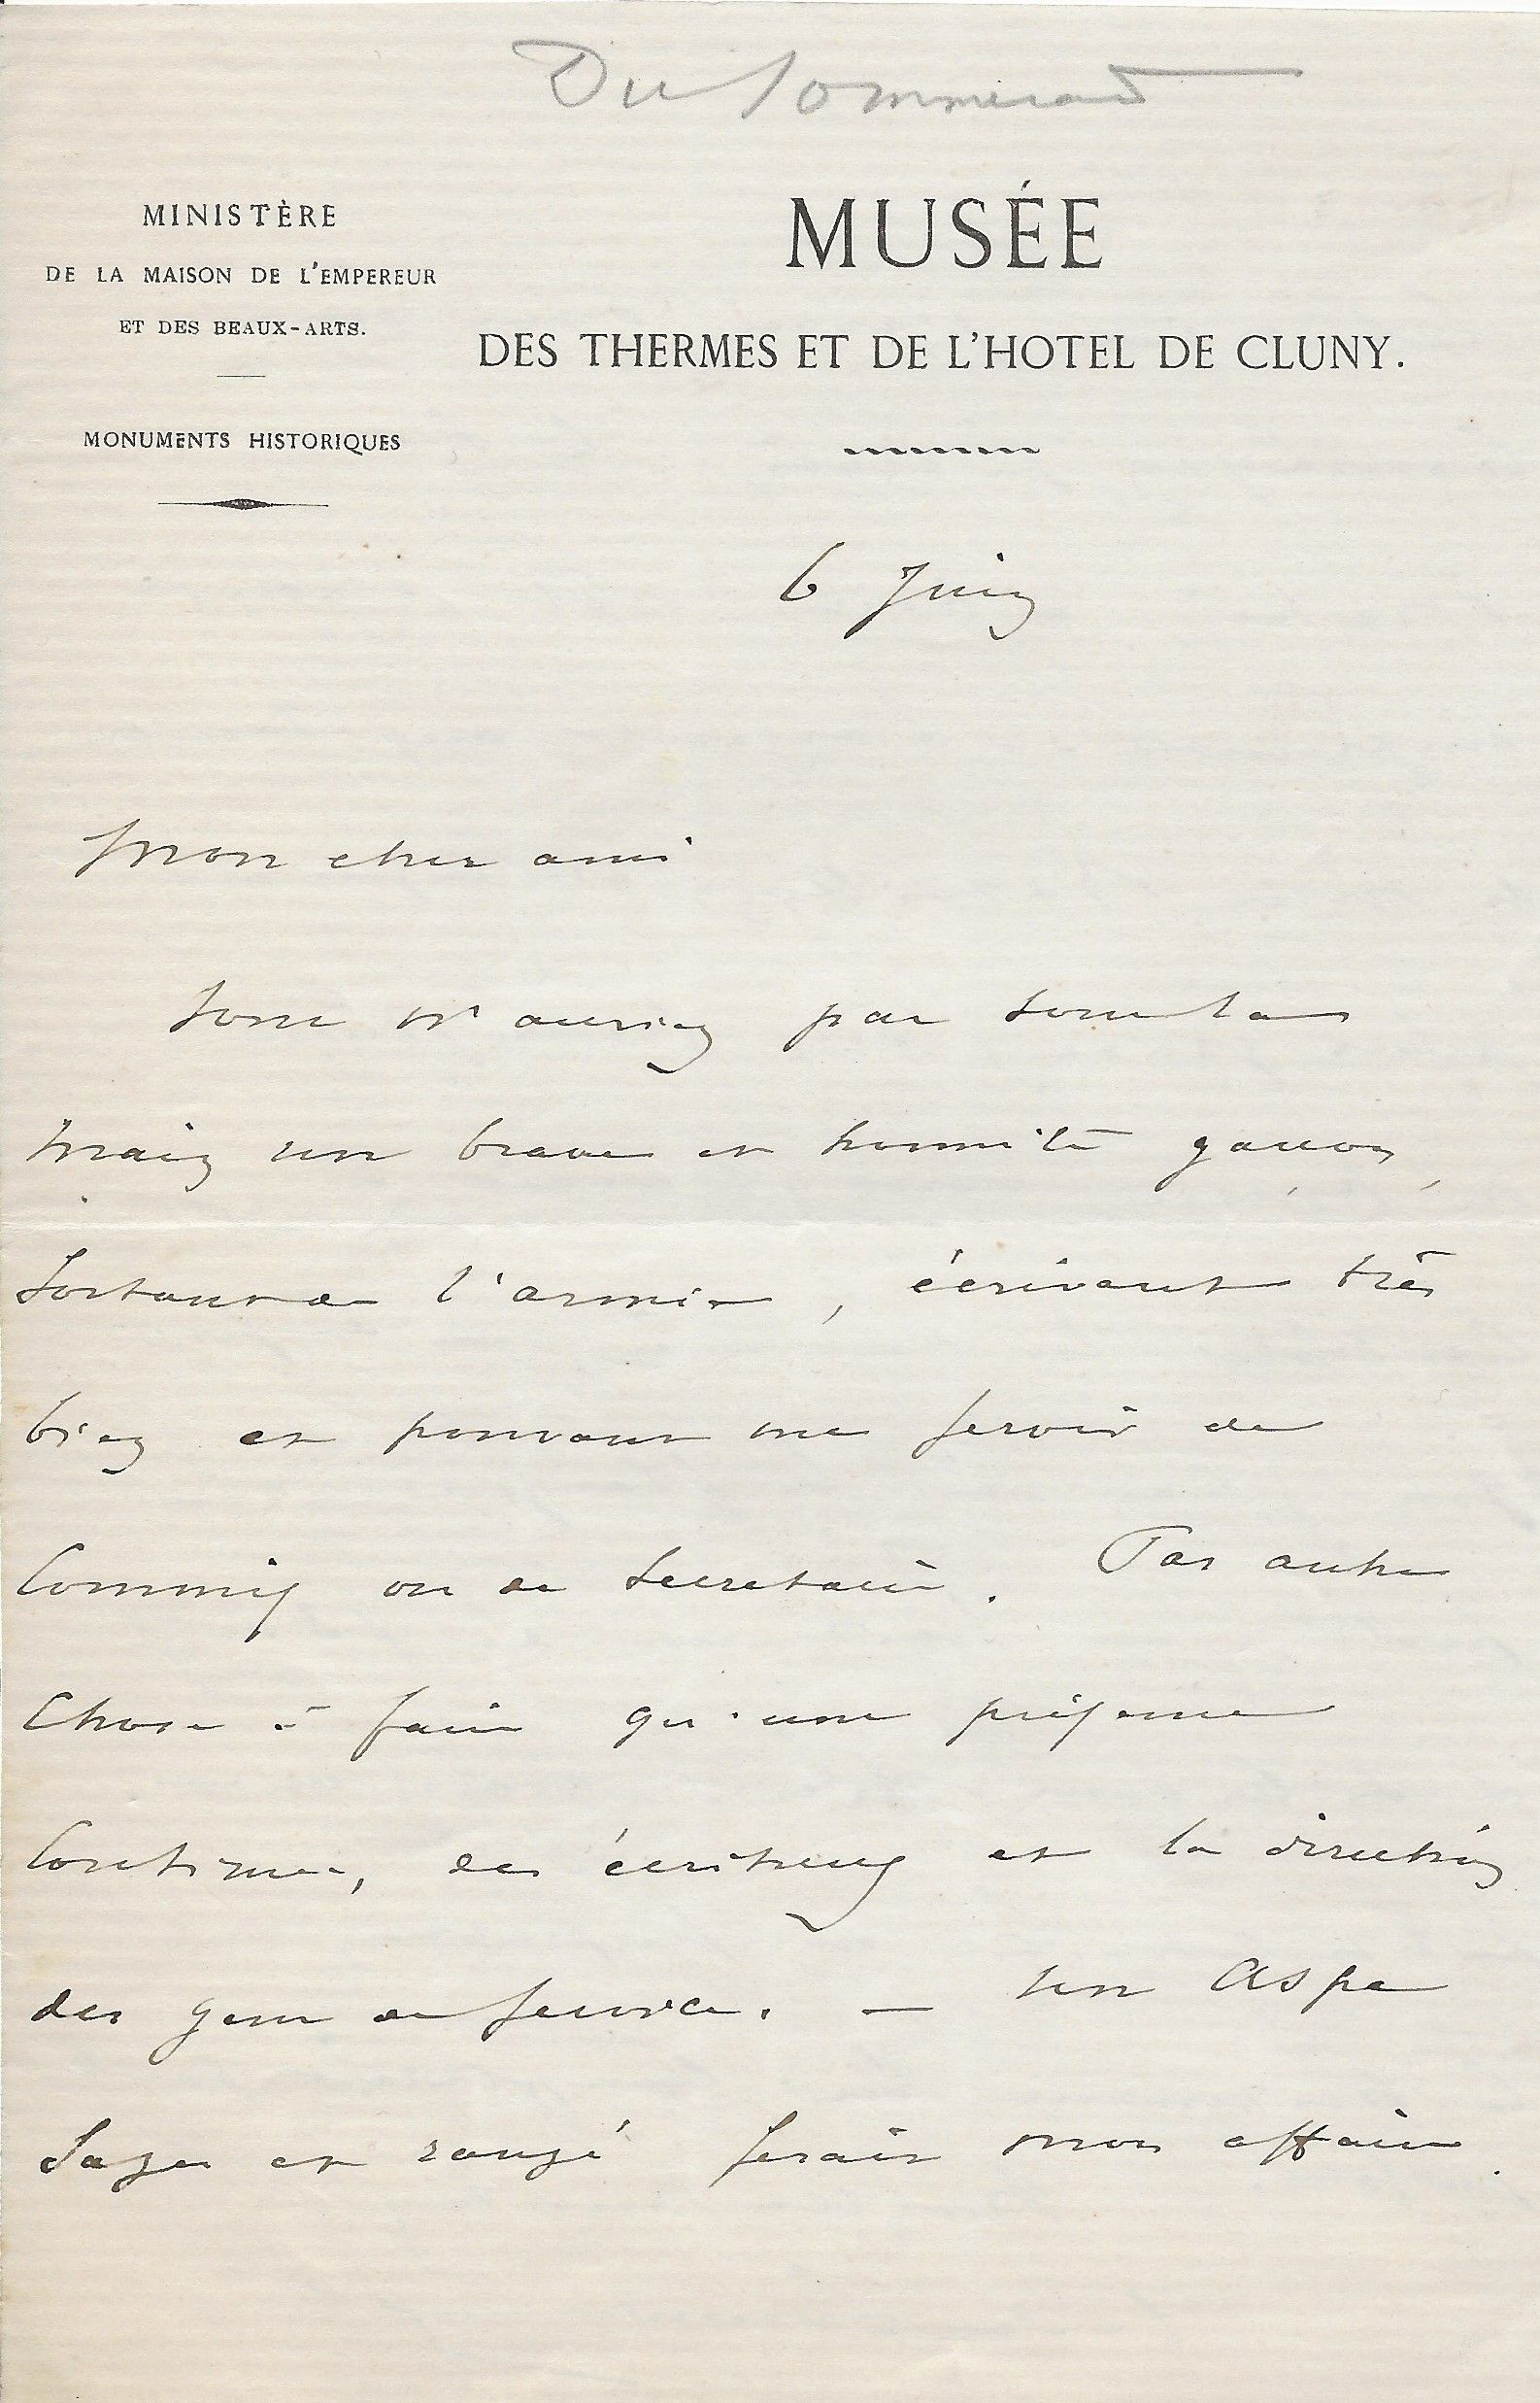 Du Sommerard
MINISTÈRE
DE LA MAISON DE L'EMPEREUR
ET DES BEAUX-ARTS.
MONUMENTS HISTORIQUES
MUSÉE
DES THERMES ET DE L'HOTEL DE CLUNY.
6 Juin
Mon cher ami
Vous n'auriez pas sous la
main un brave et honnête garçon,
sortant de l'armée, écrivant très
bien et pouvant me servir de
Commis ou de Secretaire. Pas autre
Chose à faire qu'une présence
Continue, des écritures et la direction
des gens de service. — Un
Sage et rangé ferait mon affaire.